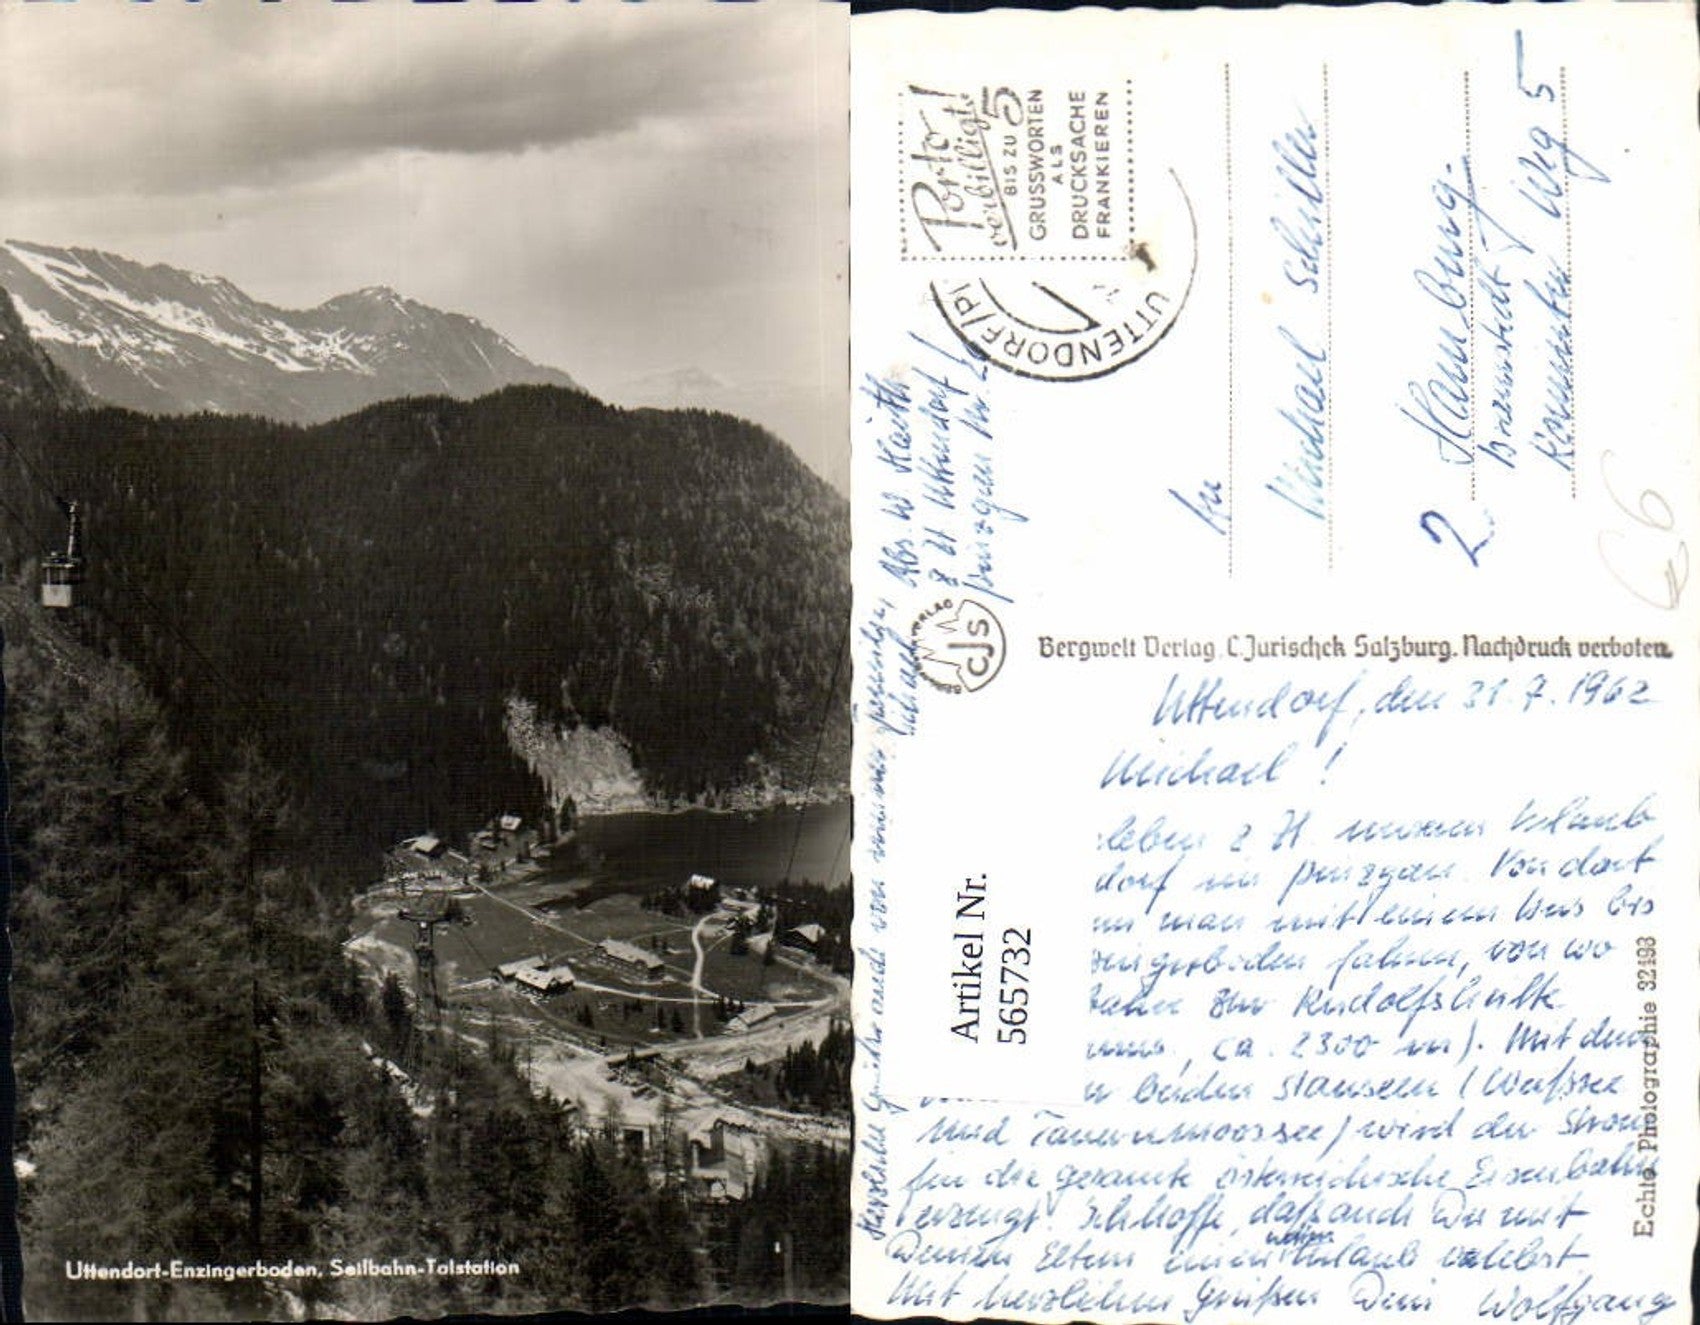 Uttendorf-Enzingerboden, Seilbahn-Talstation
Porto!
verbilligt!
BIS ZU 5
GRUSSWORTEN
ALS
DRUCKSACHE
FRANKIEREN
UTTENDORF/PI
An
Michael Schiller
2 Hamburg.
Bramstedt Weg 5
Abs. W
Uttendorf
Pinzgau Nr. 2
CJS
Bergwelt Verlag C. Jurischek Salzburg. Nachdruck verboten.
Uttendorf, den 31.7.1962
Michael!
leben z Zt. unseren Urlaub
dorf im Pinzgau. Von dort
man mit einem Bus bis
zingerboden fahren, von wo
zur Rudolfshütte
ca. 2300 m). Mit dem
beiden Stauseen (Weißsee
und Tauernmoossee) wird der Strom
für die gesamte österreichische Eisenbahn
erzeugt. Ich hoffe, daß auch Du mit
Deinen Eltern einen Urlaub verlebst.
Mit herzlichen Grüßen Dein Wolfgang
Herzliche Grüße auch von meiner
Artikel Nr.
565732
Echte Photographie 32193